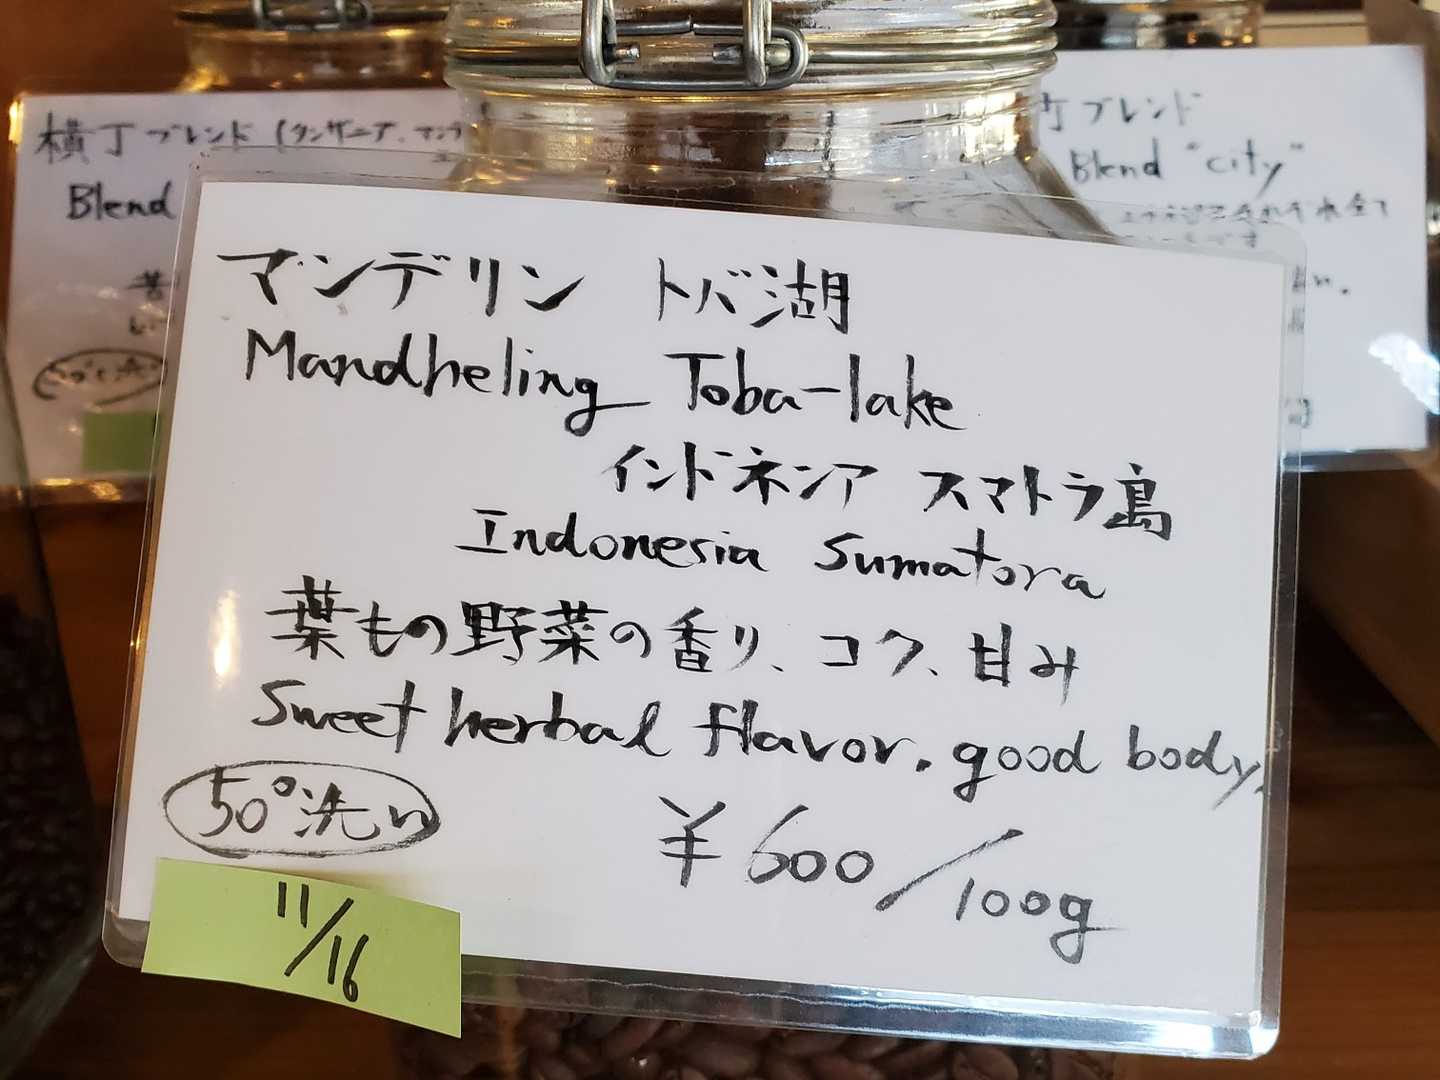 横丁ブレンド (タンザニア、マンデ
Blend
町ブレンド
Blend "city"
マンデリン トバ湖
Mandheling Toba-lake
インドネシア スマトラ島
Indonesia Sumatora
葉もの野菜の香り、コク、甘み
Sweet herbal flavor. good body.
50°洗い
¥600/100g
11/16
50°洗い